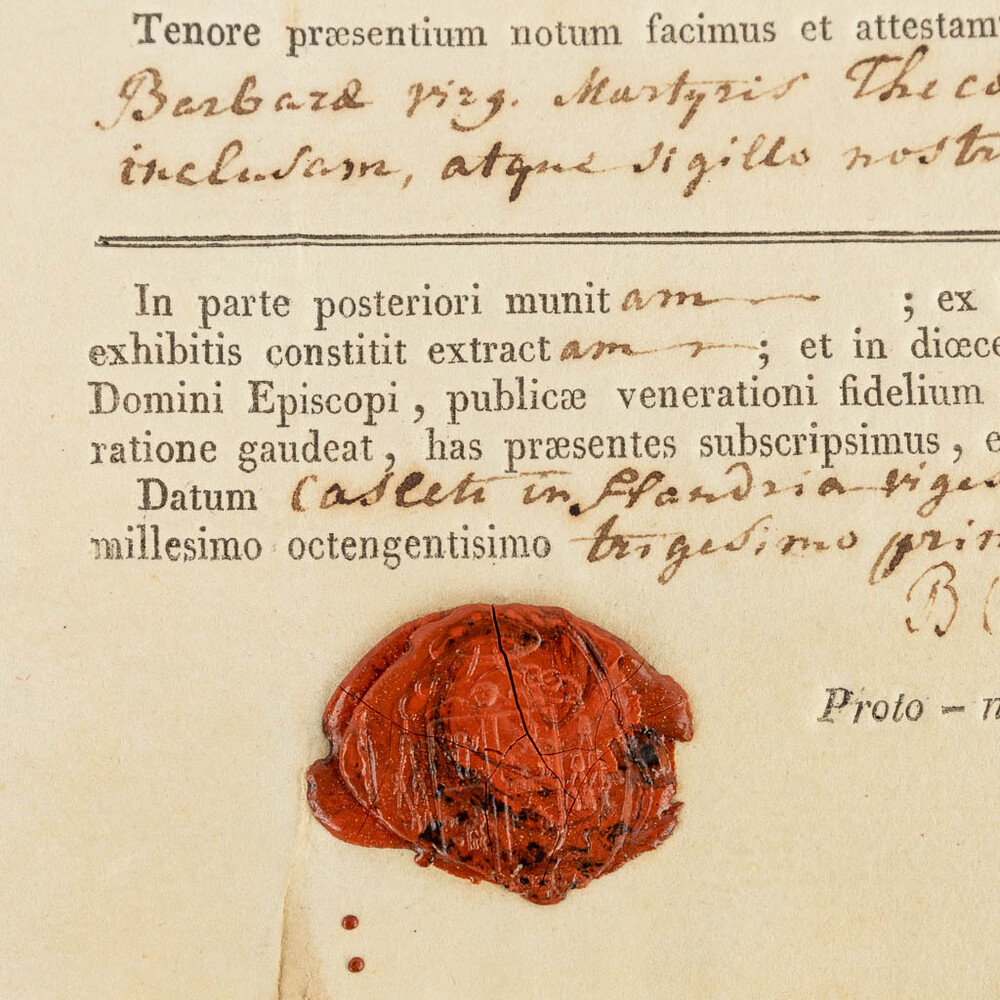 Tenore præsentium notum facimus et attestam
Barbaræ virg. Martyris Theca
inclusam, atque sigillo nostr
In parte posteriori munitam ; ex
exhibitis constitit extractam ; et in diœce
Domini Episcopi, publicæ venerationi fidelium
ratione gaudeat, has præsentes subscripsimus, e
Datum Casleti in Flandria viges
millesimo octengentisimo trigesimo prim
B
Proto - n